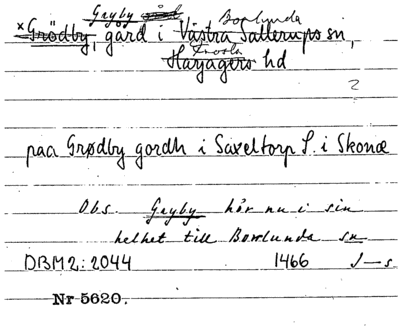 Gryby Borlunda
×Grödby, gård i Västra Sallerups sn,
Frosta
Harjagers hd
?
paa Grødby gordh i Saxeltorp S. i Skonæ
Obs. Gryby hör nu i sin
helhet till Borlunda sn
DBM 2: 2044 1466 J—s
Nr 5620.